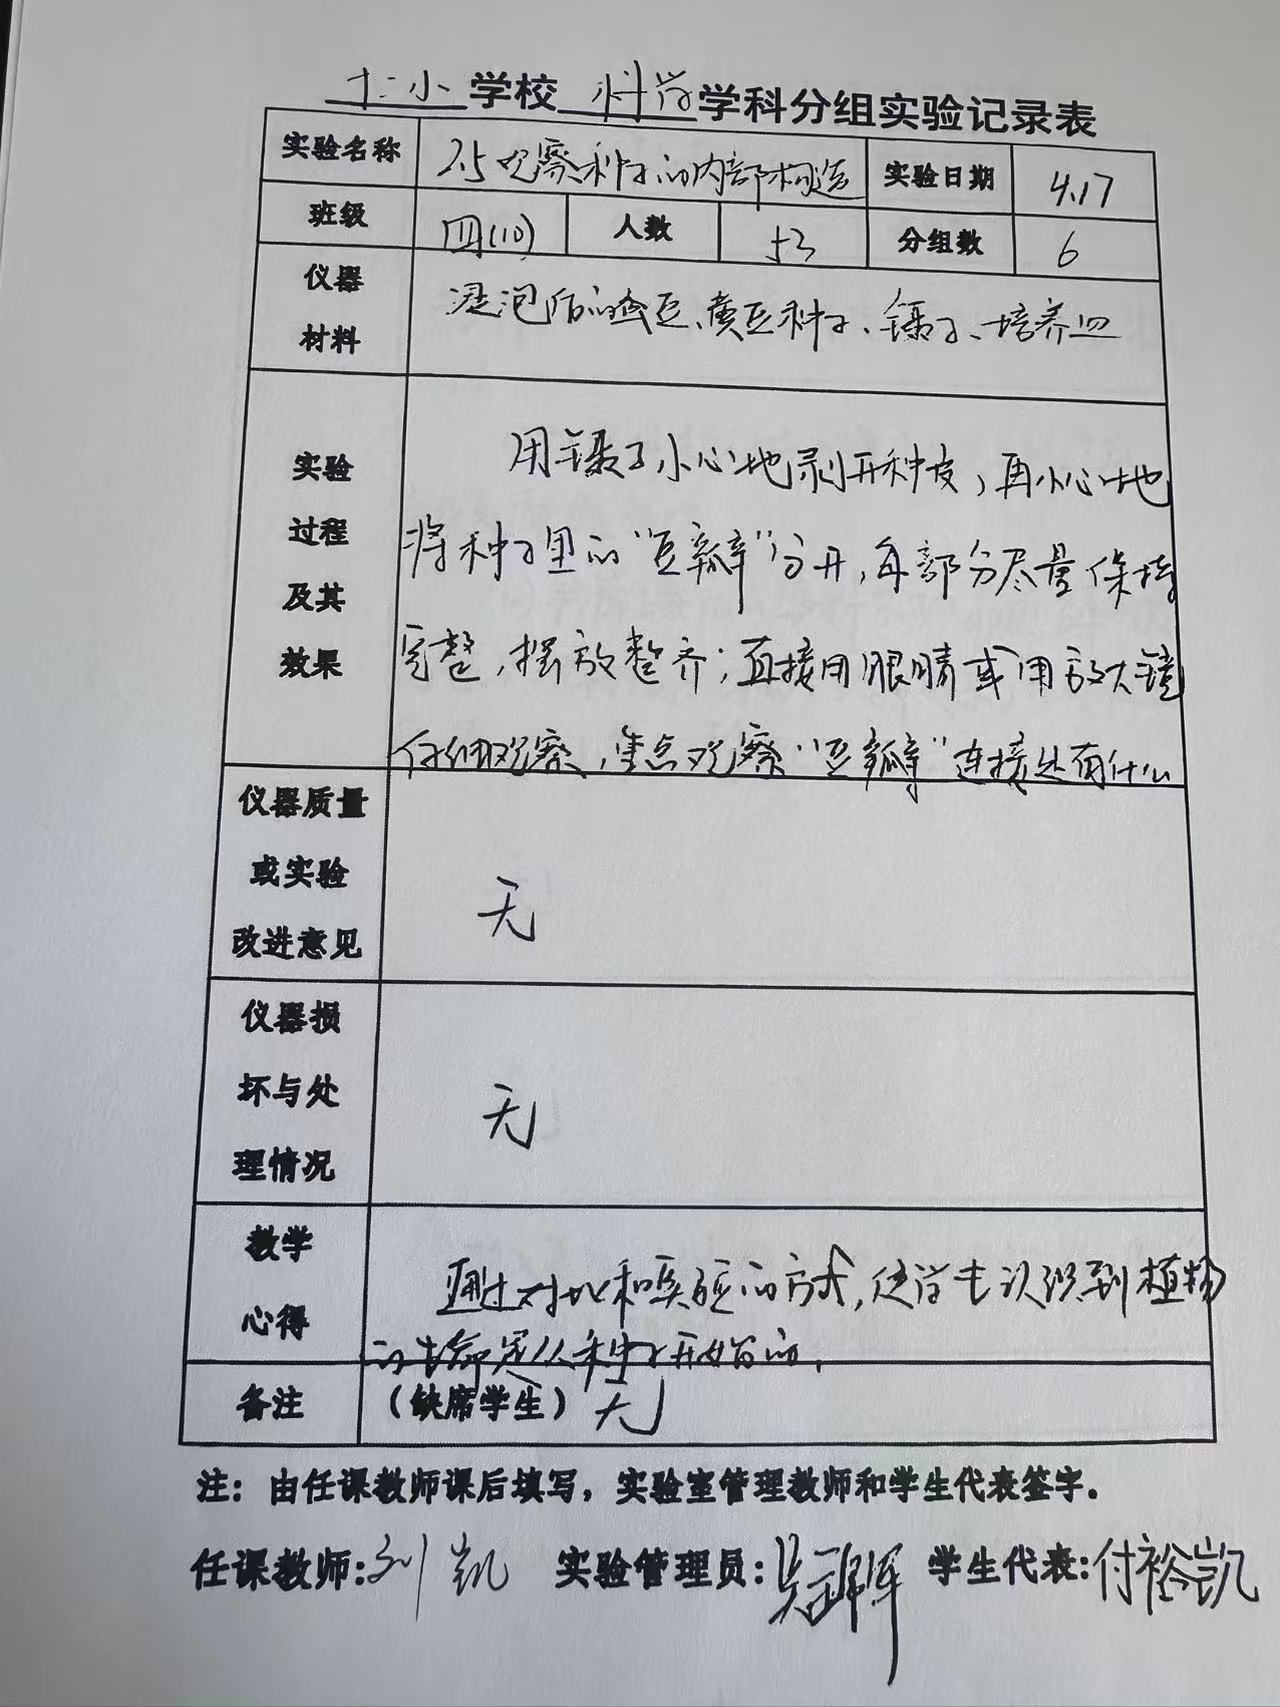 十二小学校 科学学科分组实验记录表
实验名称 2.5观察种子的内部构造 实验日期 4.17
班级 四(10) 人数 53 分组数 6
仪器材料 浸泡后的蚕豆、黄豆种子、镊子、培养皿
实验过程及其效果
用镊子小心地剥开种皮，再小心地
将种子里的“豆瓣”分开，每部分尽量保持
完整，摆放整齐；直接用眼睛或用放大镜
仔细观察，重点观察“豆瓣”连接处有什么
仪器质量或实验改进意见 无
仪器损坏与处理情况 无
教学心得
通过对比和实验的方式，使学生认识到植物
的生命是从种子开始的。
备注 （缺席学生）无
注：由任课教师课后填写，实验室管理教师和学生代表签字。
任课教师:刘凯 实验管理员:吴 学生代表:付裕凯